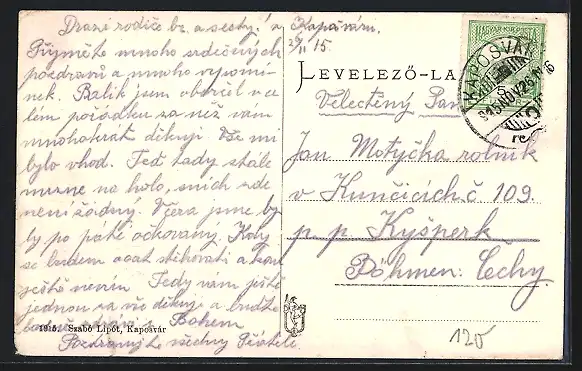 Drazí rodiče br. a sestry! v Kapošváru.
29/11 15.
Přijměte mnoho srdečných
pozdravů a mnoho vzpomí-
nek. Balík jsem obdržel v ce
lém pořádku za něž vám
mnohokrát děkuji. Vše mi
bylo vhod. Teď tady stále
mrzne na holo, sníh zde
není žádný. Včera jsme by
ly po páté očkovaný. Kdy
se budem stěhovati
ještě nevím. Tedy vám ještě
jednou za vše děkuji a buďte
Bohem
Pozdravujte všechny Přátele.
1915. Szabó Lipót, Kaposvár
LEVELEZŐ-LA
MAGYAR KIR. POSTA
KAPOSVÁR
915 NOV 29
Velectěný Pan
Jan Motyčka rolník
v Kunčicích č 109.
p. p. Kyšperk
Böhmen: Čechy.
120